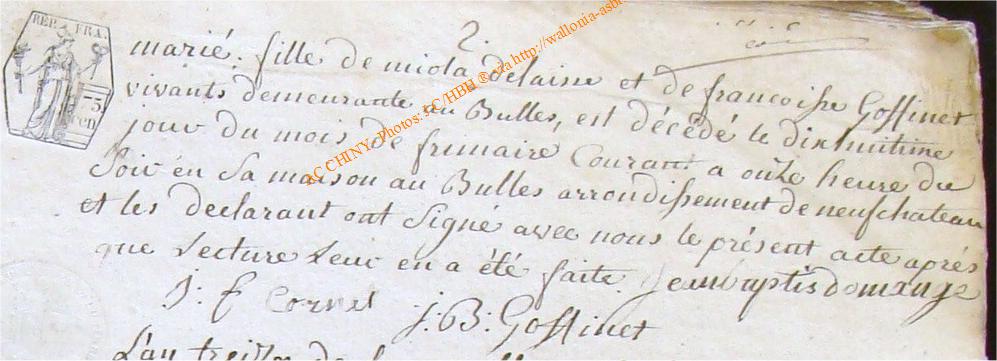 2.
REP. FRA.
marié. fille de miola delaisse et de francoisse Goffinet
vivants demeurante au Bulles, est décédé le dixhuitime
jour du mois de frimaire Courant a onze heure du
Soir en Sa maison au Bulles arrondissement de neufchateau
et les declarant ont Signé avec nous le présent acte aprés
que Lecture Leur en a été faite. jean baptis domange
J: F Cornet J: B: Goffinet
L'an treize de
AC CHINY - Photos: FC/HBH ® via http://wallonia-asb